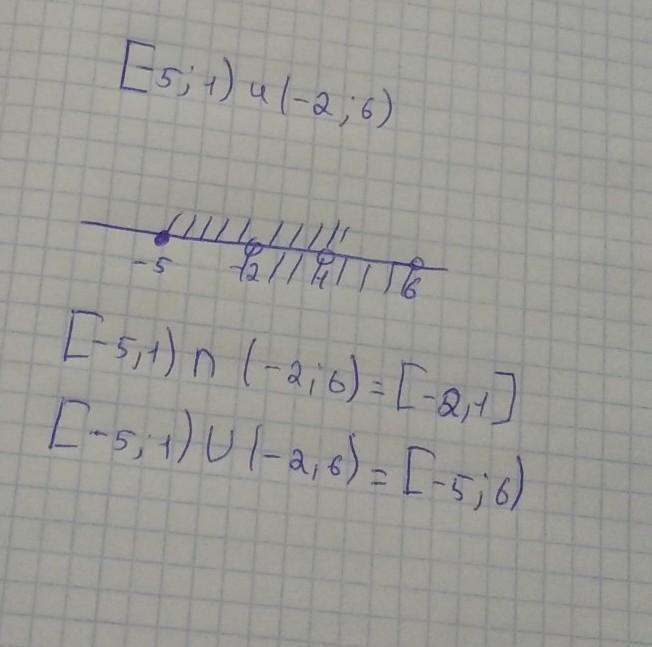 [-5; 1) и (-2; 6)
-5 -2 1 6
[-5, 1) ∩ (-2; 6) = [-2, 1]
[-5; 1) ∪ (-2, 6) = [-5; 6)